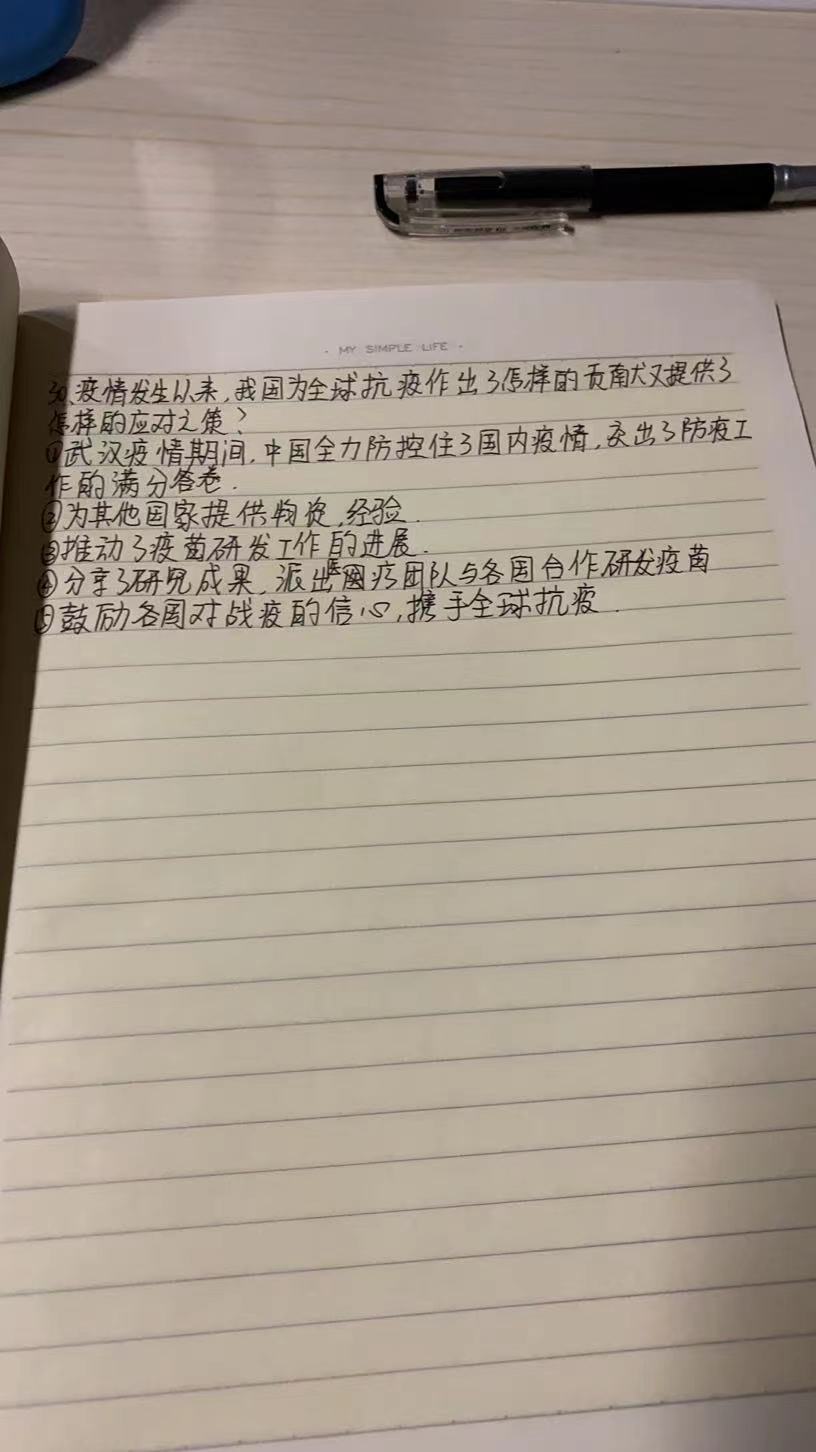 · MY SIMPLE LIFE ·
30、疫情发生以来,我国为全球抗疫作出了怎样的贡献又提供了
怎样的应对之策?
①武汉疫情期间,中国全力防控住了国内疫情,交出了防疫工
作的满分答卷.
②为其他国家提供物资,经验.
③推动了疫苗研发工作的进展.
④分享了研究成果,派出医疗团队与各国合作研发疫苗
⑤鼓励各国对战疫的信心,携手全球抗疫.